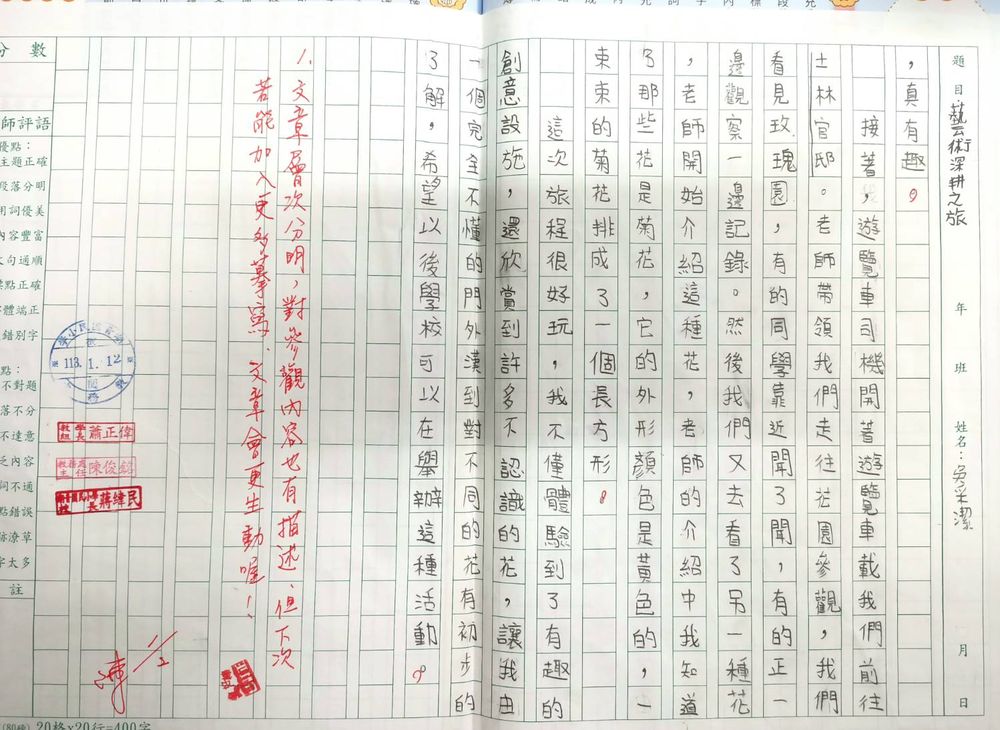 題目 藝術深耕之旅
年 班 姓名：月 日
，真有趣。
接著，遊覽車司機開著遊覽車載我們前往
士林官邸。老師帶領我們走往花園參觀，我們
看見玫瑰園，有的同學靠近聞了聞，有的正一
邊觀察一邊記錄。然後我們又去看了另一種花
，老師開始介紹這種花，老師的介紹中我知道
了那些花是菊花，它的外形顏色是黃色的，一
束束的菊花排成了一個長方形。
這次旅程很好玩，我不僅體驗到了有趣的
創意設施，還欣賞到許多不認識的花，讓我由
一個完全不懂的門外漢到對不同的花有初步的
了解，希望以後學校可以在舉辦這種活動。
1、文章層次分明，對參觀內容也有描述、但下次
若能加入更多摹寫、文章會更生動喔！
陳 1/2
分數
師評語
優點：
主題正確
段落分明
用詞優美
內容豐富
文句通順
標點正確
字體端正
錯別字
點：
不對題
落不分
不達意
乏內容
詞不通
點錯誤
跡潦草
字太多
註
113.1.12
教學組長 蕭正偉
教務主任 陳俊銘
蔣緯民
20格x20行=400字